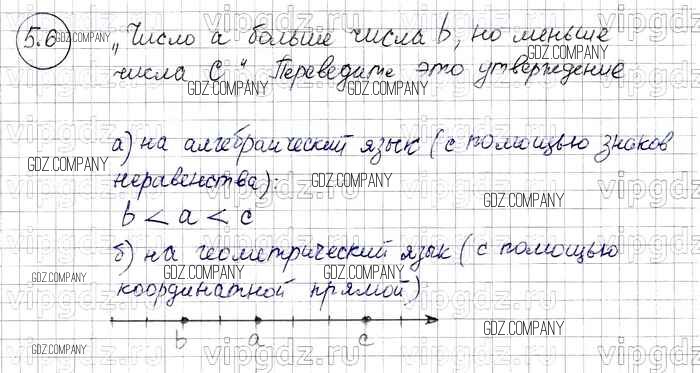 5.6 „Число а больше числа b, но меньше
числа С“ Переведите это утверждение
а) на алгебраический язык (с помощью знаков
неравенства):
b < a < c
б) на геометрический язык (с помощью
координатной прямой)
b a c
GDZ.COMPANY
vipgdz.ru